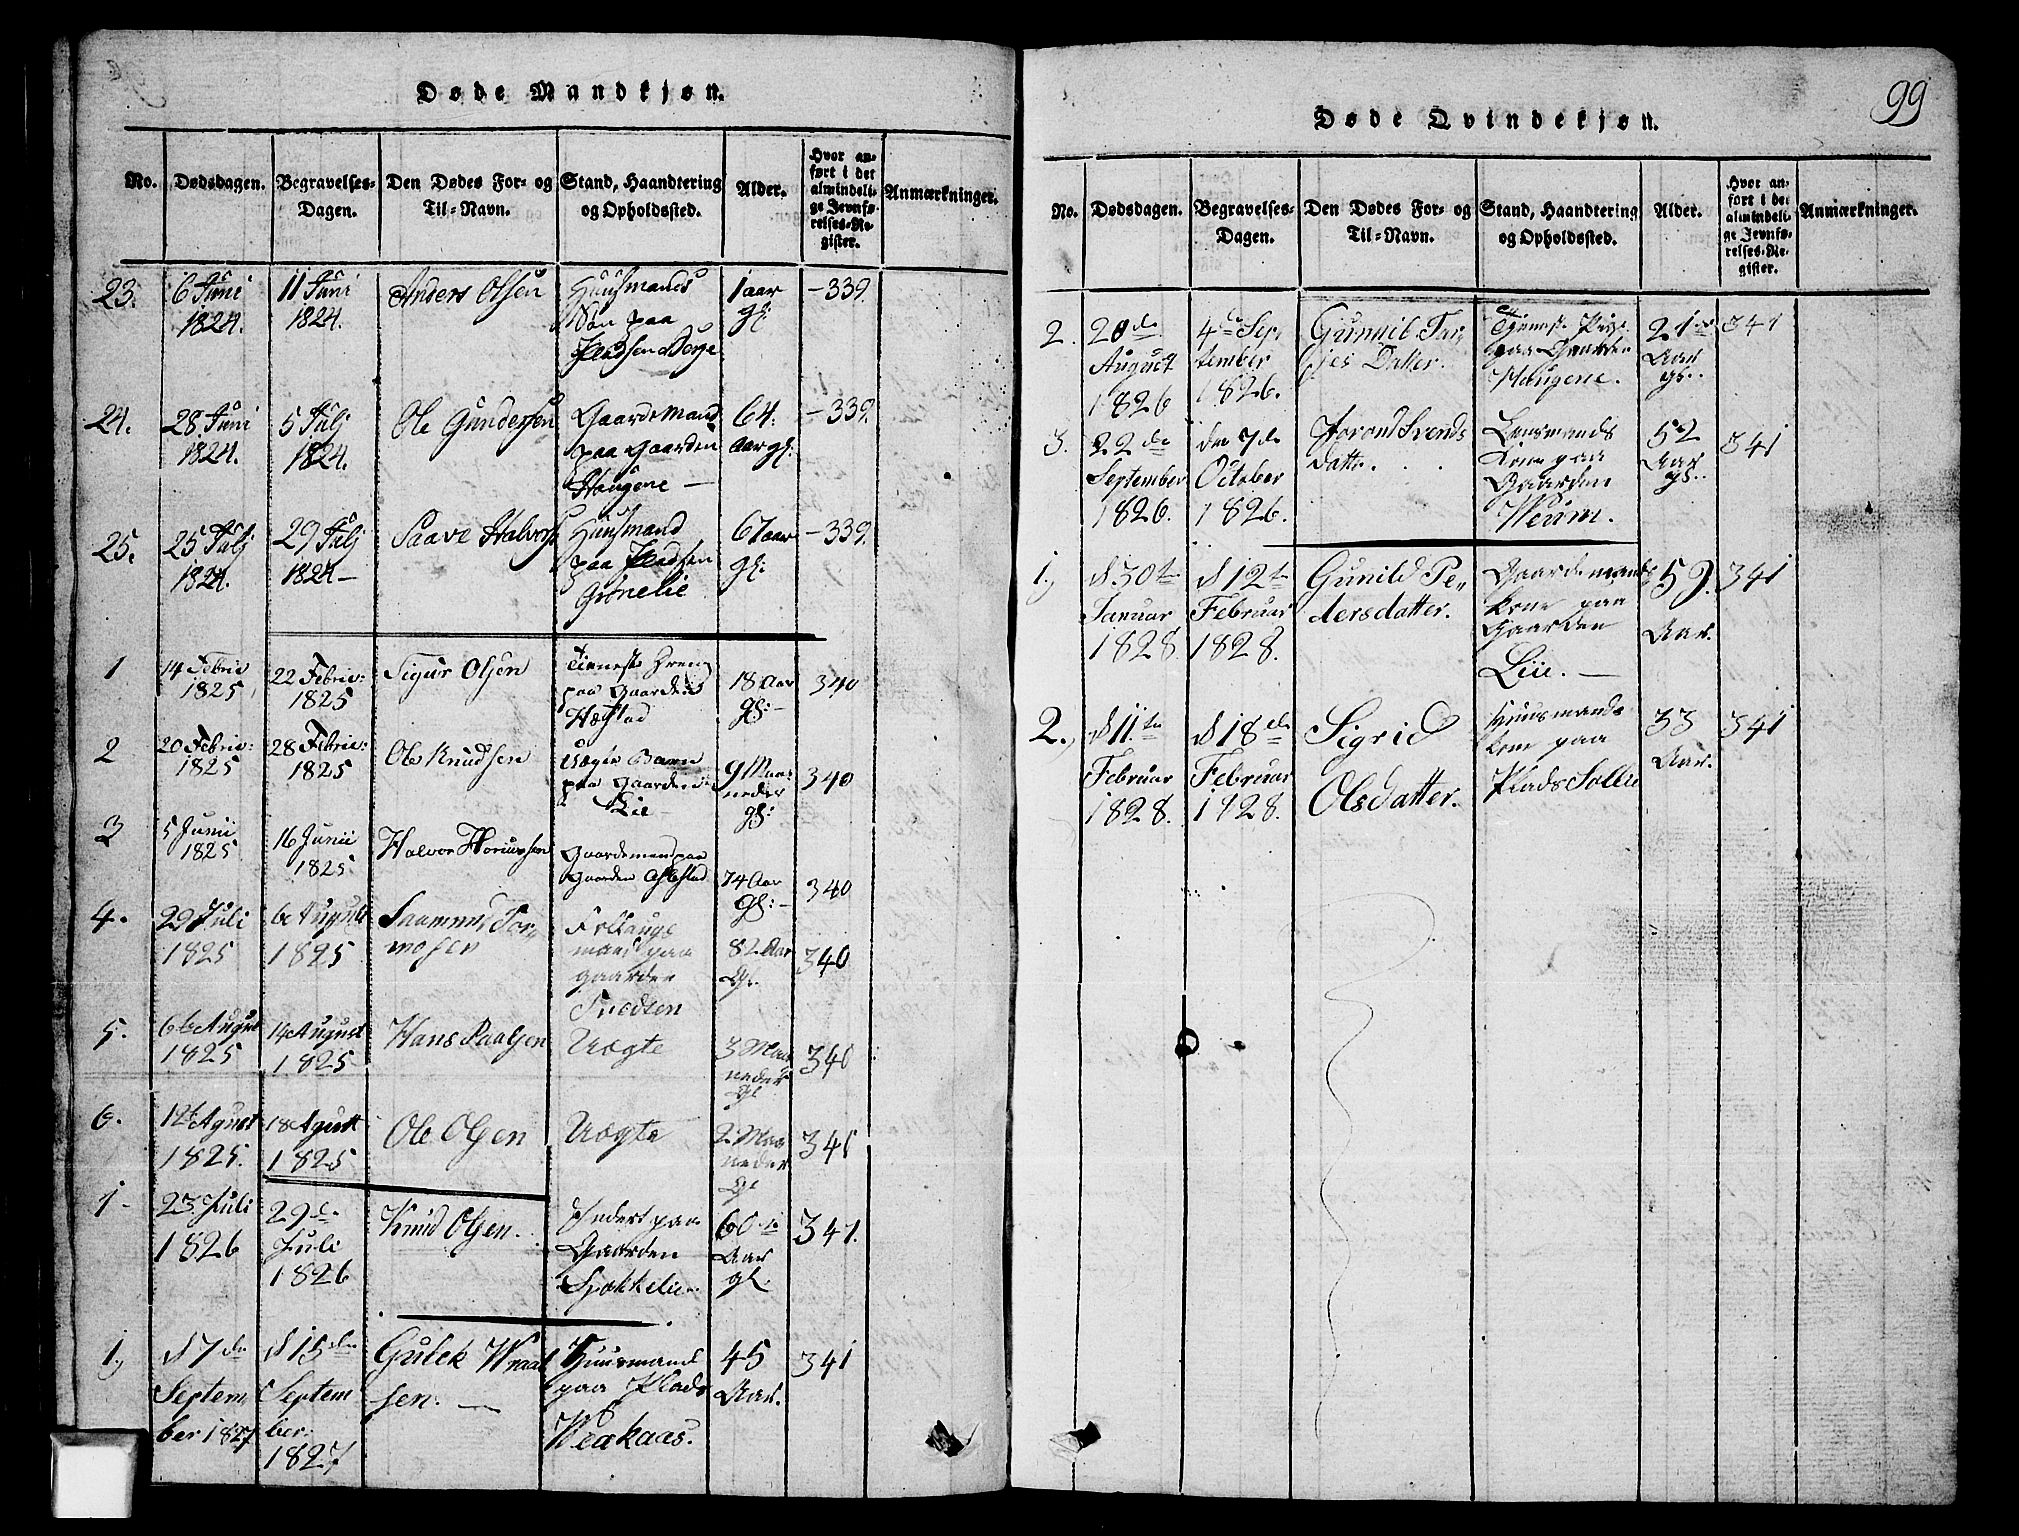 Døde Mandkjøn.
No.
Dødsdagen.
Begravelses-
Dagen.
Den Dødes For- og
Til-Navn.
Stand, Haandtering
og Opholdssted.
Alder.
Hvor an-
ført i det
almindeli-
ge Jevnfø-
relses-Re-
gister.
Anmærkninger.
23.
6 Juni
1824.
11 Juni
1824.
Anders Olsen
Huusmands
Søn paa
Pladsen Berge
1 aar
gl:
-339.
24.
28 Juni
1824.
5 Julj
1824.
Ole Gundersen
Gaardemand
paa Gaarden
Haugene -
64.
aar gl:
-339.
25.
25 Julj
1824.
29 Julj
1824-
Saave Halvors
Huusmand
paa Pladsen
Grønelie
67 aar
gl:
-339.
1
14 Febrie
1825
22 Febrie:
1825
Sigur Olsen
Tieneste Dreng
paa Gaarden
Hægstad
18 Aar
gl:-
340
2
20 Febrie:
1825
28 Febrie:
1825
Ole Knudsen
Uægte Barn
paa Gaarden
Lie
9 Maa
neder
gl:
340
3
5 Junii
1825
16 Junii
1825.
Halvor
Gaardemand paa
Gaarden
74 Aar
gl:-
340
4.
29 Juli
1825
6te August
1825
Saamund Tor-
mosen
mand paa
gaarden
82 Aar
Gl.
340
5.
6te August
1825
14 August
1825
Hans Paalsen
Uægte
3 Maa
neder
gl
340
6.
12te Agust
1825.
18 Agust
1825
Ole Olsen
Uægte
2 Maa
neder
gl
341
1
23 Juli
1826
29de
Juli
1826
Knud Olsen.
Inderst paa
Gaarden
Sjøkkelie.
60
Aar
gl.
341.
1.
d 7de
Septem
ber 1827
d 15de
Septem
ber.
1827
Gulek Wraal
sen. -
Huusmand
paa Plads
Weakaas.
45
Aar.
341
99
Døde Qvindekjøn.
No.
Dødsdagen.
Begravelses-
Dagen.
Den Dødes For- og
Til-Navn.
Stand, Haandtering
og Opholdssted.
Alder.
Hvor an-
ført i det
almindeli-
ge Jevnfø-
relses-Re-
gister.
Anmærkninger.
2.
28de
August
1826
4de Sep-
tember
1826.
Gunnil Tar-
jes Datter.
Tjeneste Pige
paa Gaarden
Haugene.
21
Aar
gl.
341
3.
22de
September
1826.
den 7de
October
1826.
Jorond Svends
datter.
Lensmands
kone paa
Gaarden
Weum.
52
Aar
gl.
341
1.
d 30te
Januar
1828.
d 12te
Februar
1828.
Gunild Pe-
dersdatter.
Gaardemands
kone paa
Gaarden
Liie. -
59.
Aar.
341
2.
d 11te
Februar
1828.
d 18de
Februar
1828.
Sigrid
Olsdatter.
Huusmands
kone paa
Plads Sollie
33
Aar.
341